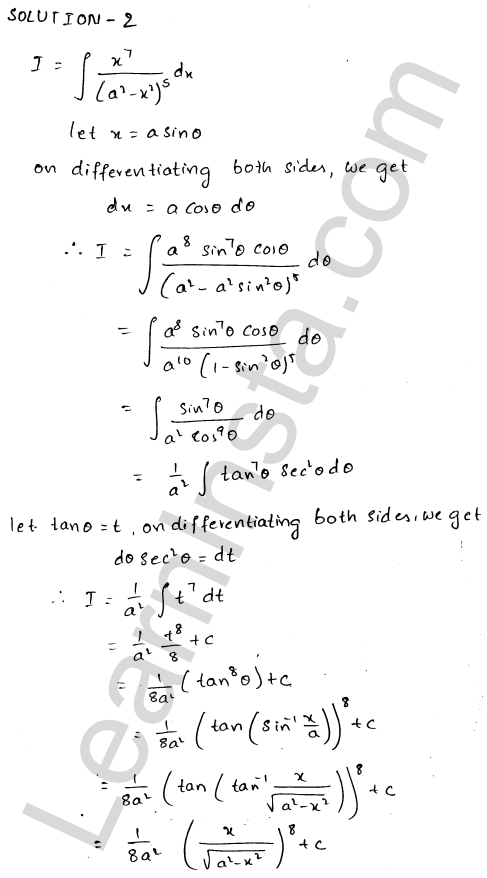 SOLUTION - 2
I = ∫ x⁷ / (a² - x²)⁵ dx
let x = a sinθ
on differentiating both sides, we get
dx = a cosθ dθ
∴ I = ∫ a⁸ sin⁷θ cosθ / (a² - a² sin²θ)⁵ dθ
= ∫ a⁸ sin⁷θ cosθ / a¹⁰ (1 - sin²θ)⁵ dθ
= ∫ sin⁷θ / a² cos⁹θ dθ
= 1/a² ∫ tan⁷θ sec²θ dθ
let tanθ = t, on differentiating both sides, we get
dθ sec²θ = dt
∴ I = 1/a² ∫ t⁷ dt
= 1/a² t⁸/8 + c
= 1/8a² (tan⁸θ) + c
= 1/8a² (tan (sin⁻¹ x/a))⁸ + c
= 1/8a² (tan (tan⁻¹ x/√(a² - x²)))⁸ + c
= 1/8a² (x/√(a² - x²))⁸ + c
LearnInsta.com